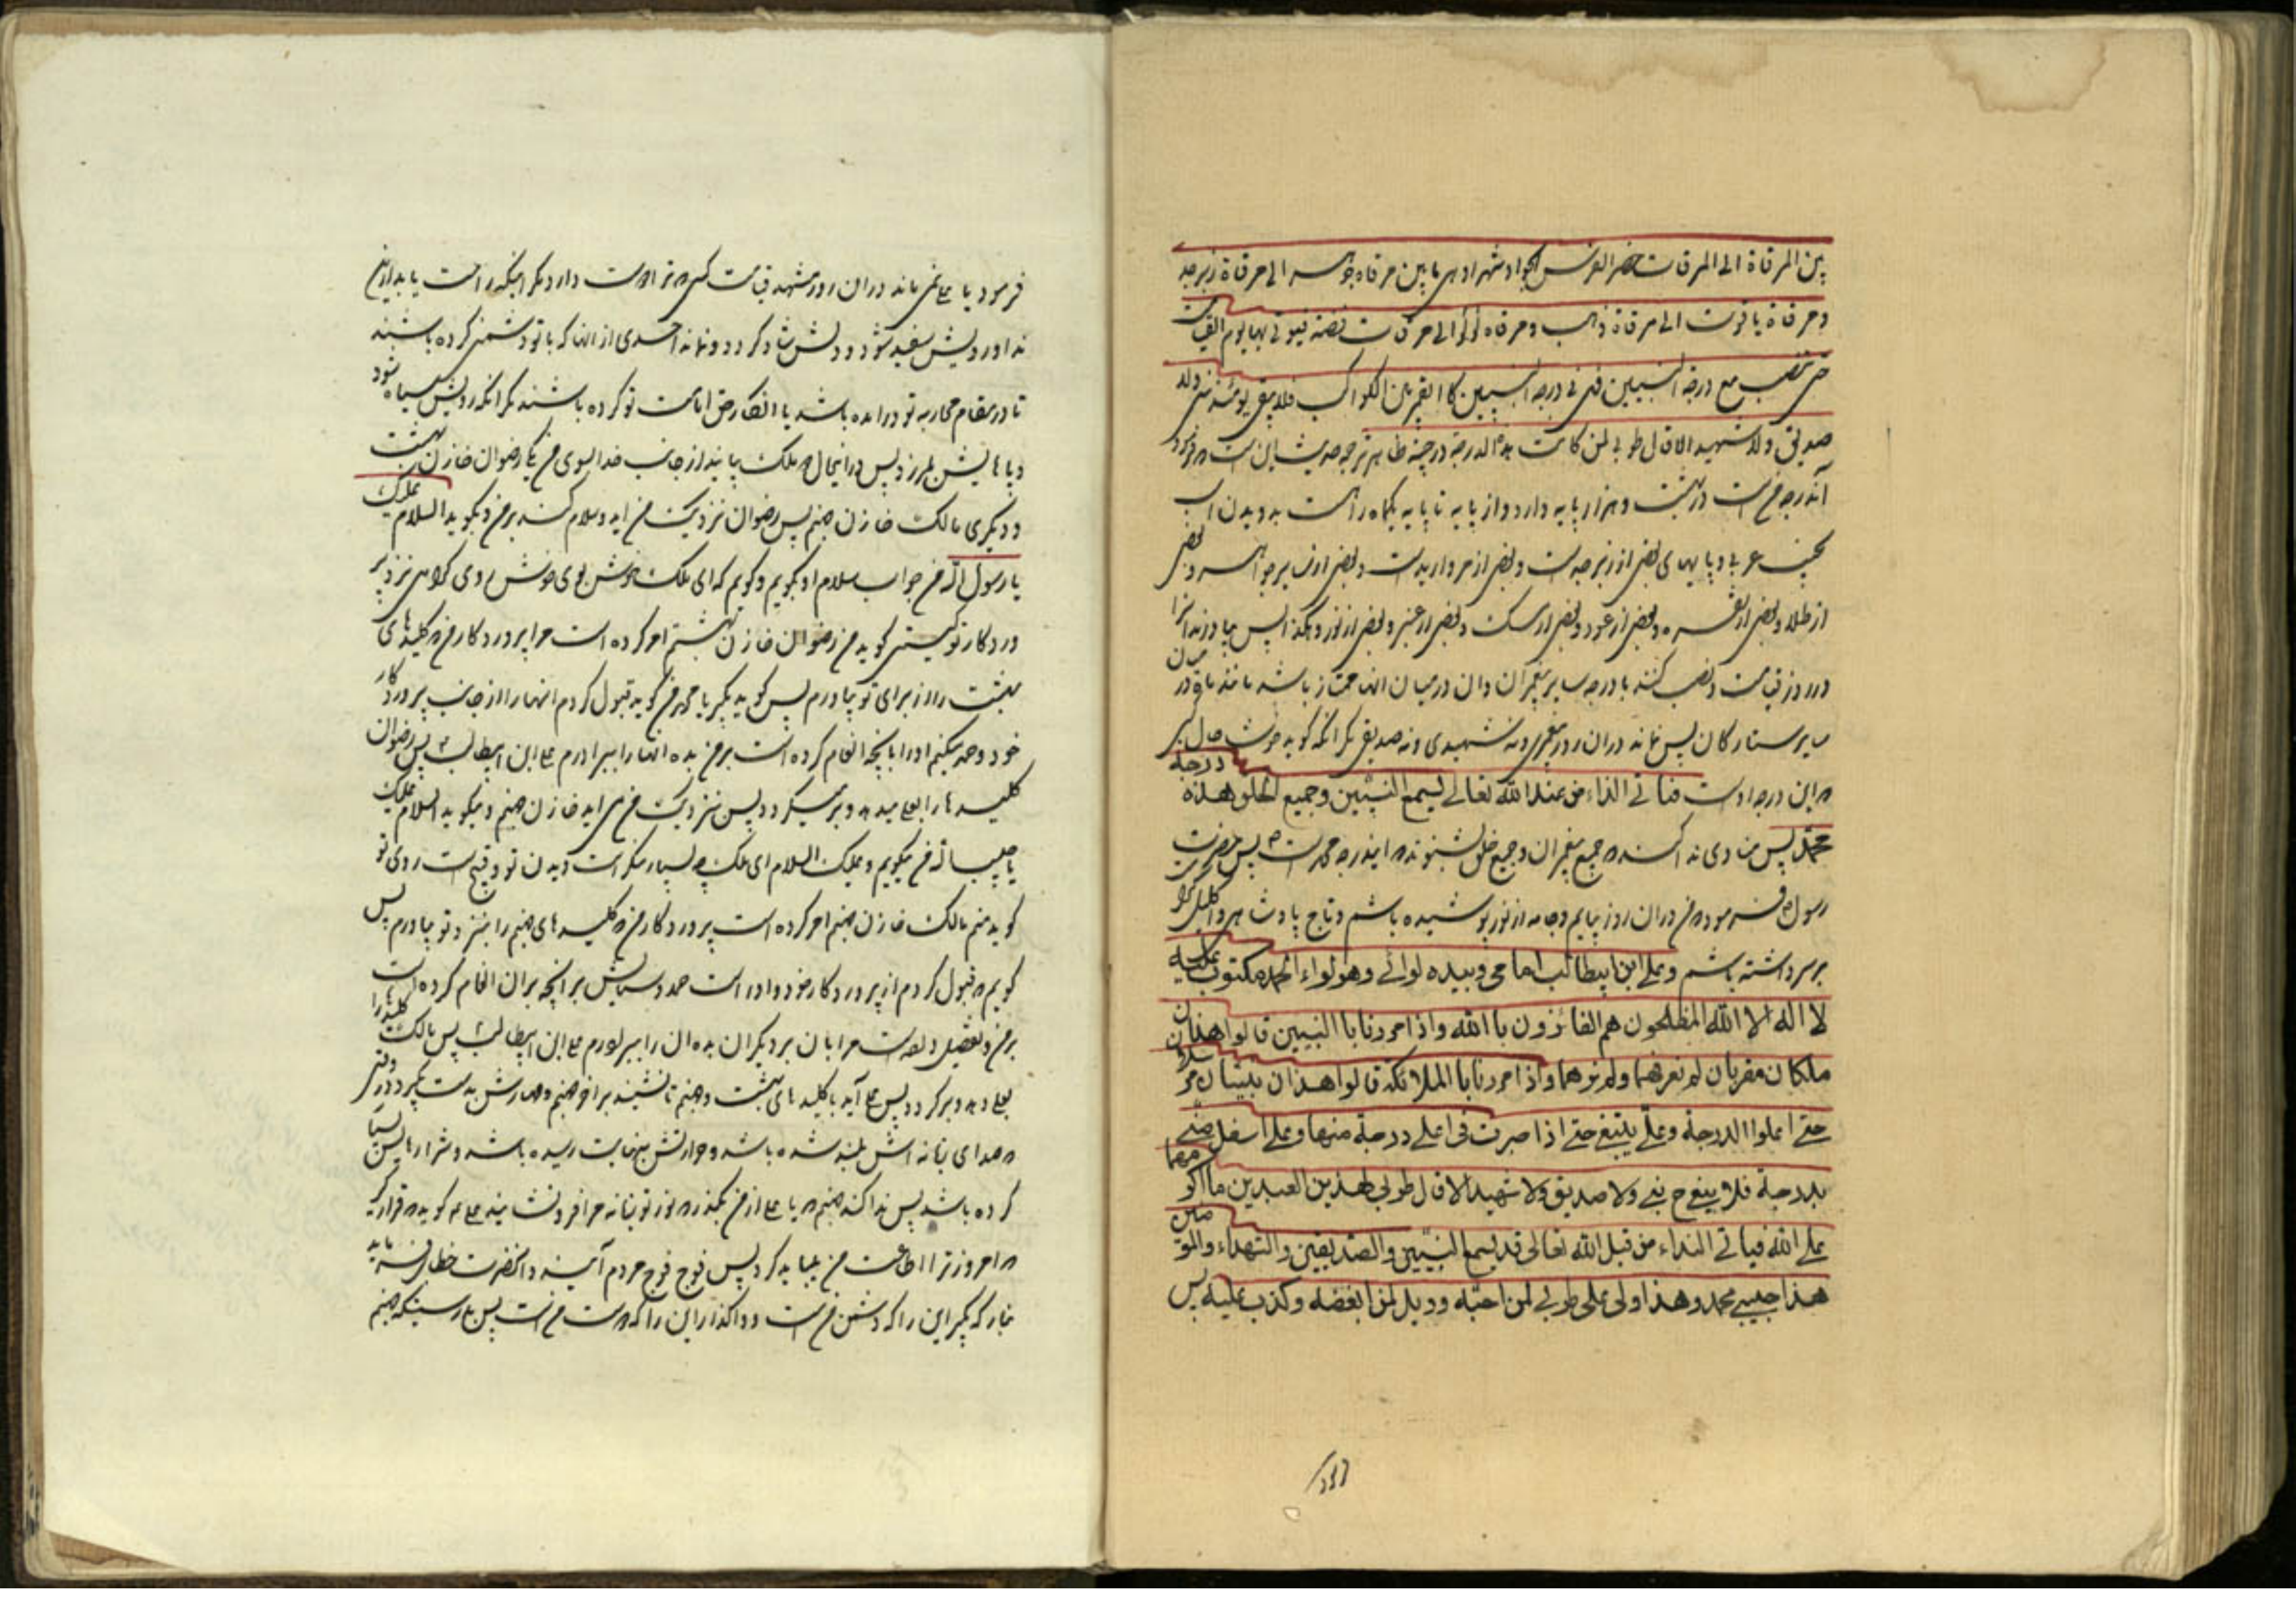 بین المرقاة الی المرقات حضر الفرس الجواد شهرا وهی ما بین مرقاه جوهر الی مرقاة زبرجد
ومرقاة یاقوت الی مرقاة ذهب ومرقاه لولو الی مرقات فضه فیوتی بها یوم القیمت
حتی تنصب مع درجة النبیین فهی فی درجة النبیین کا القمر بین الکواکب فلا یبقی یومئذ نبی ولا
صدیق ولا شهید الا قال طوبی لمن کانت هذا الدرجة درجته ظاهر ترجمه حدیث این است که فرمود
آندرجه من است در بهشت و هزار پایه دارد و از پایه تا پایه یکماه راهست بدویدن اسب
نجیب عربی و پایهای بعضی از زبرجد است و بعضی از مروارید است و بعضی از سایر جواهر و بعضی
از طلا و بعضی از نقره و بعضی از عود و بعضی از مسک و بعضی از عنبر و بعضی از نور و هکذا پس بیاورند آنرا
در روز قیامت و نصب کنند با درجه سایر پیغمبران و آن در میان آنها ممتاز باشد مانند ماه در میان
سایر ستارکان پس نماند در آن روز پیغمبری و نه شهیدی و نه صدیقی مکر آنکه کوید خوشا حال کسی
که این درجه اوست فیاتی النداء من عند الله تعالی لیسمع النبیین وجمیع الخلق هذه درجة
محمد پس منادی ندا کند که جمیع پیغمبران و جمیع خلق بشنوند که این درجه محمد است ص پس حضرت
رسول فرمود که من در آن روز بیایم و جامه از نور پوشیده باشم و تاج پادشاهی و اکلیل کرامت
بر سر داشته باشم وعلی ابن ابیطالب امامی وبیده لوائی وهو لواء الحمد مکتوب علیه
لا اله الا الله المفلحون هم الفائزون با الله واذا مررنا با النبیین قالوا هذان
ملکان مقربان لم نعرفهما ولم نرهما واذا مررنا با الملائکه قالوا هذان نبیان مرسلان
حتی اعلوا الدرجة وعلی یتبعنی حتی اذا صرت فی اعلی درجة منها وعلی اسفل منی
بدرجة فلا یبقی ح نبی ولا صدیق ولا شهید الا قال طوبی لهذین العبدین ما اکرمهما
علی الله فیاتی النداء من قبل الله تعالی قد یسمع النبیین والصدیقین والشهداء والمومنین
هذا حبیبی محمد وهذا ولی علی طوبی لمن احبه وویل لمن ابغضه وکذب علیه پس
فرمود یا علی نمی ماند در آن روز مشهد قیامت کسی که ترا دوست دارد مکر اینکه راحت یابد از این
ندا و رویش سفید شود و دلش شاد کردد و نماند احدی از آنها که با تو دشمنی کرده باشند
تا در مقام محاربه تو در آمده باشد یا انکار حق امامت تو کرده باشند مکر آنکه رویش سیاه شود
و پاهایش بلرزد پس در اینحال دو ملک بیایند از جانب خدا بسوی من یکی رضوان خازن بهشت
و دیکری مالک خازن جهنم پس رضوان نزدیک من آید و سلام کند بر من و بکوید السلام علیک
یا رسول الله من جواب سلام او بکویم و کویم که ای ملک خوش بوی خوش روی کرامی نزد پر
وردکار تو کیستی کوید من رضوان خازن بهشتم امر کرده است مرا پروردکار من که کلیدهای
بهشت را از برای تو بیاورم پس کوید بکیر یا محمد من کوید قبول کردم آنها را از جانب پروردکار
خود و حمد میکنم او را بآنچه انعام کرده است بر من بده آنها را ببرادرم علی ابن ابیطالب پس رضوان
کلیدها را بعلی میدهد و بر میکردد پس نزدیک من می آید خازن جهنم و میکوید السلام علیک
یا حبیب الله من میکویم و علیک السلام ای ملک چه بسیار منکر است دیدن تو و قبیح است روی تو
کوید منم مالک خازن جهنم امر کرده است پروردکار من که کلیدهای جهنم را بنزد تو بیاورم پس
کویم که قبول کردم از پروردکار خود و او راست حمد و ستایش بر آنچه بر آن انعام کرده است
بر من و تفضیل داده است مرا بآن بر دیکران بده آن را ببرادرم علی ابن ابیطالب پس مالک کلیدها را
بعلی دهد و بر کردد پس علی آید با کلیدهای بهشت و جهنم تا نشیند بر آخر جهنم و مهارش بدست بکیرد در وقتی
که صدای زبانه آتش بلند شده باشد و حرارتش بنهایت رسیده باشد و شرارهایش
کرده باشد پس ندا کند جهنم که یا علی از من بکذر که نور تو زبانه مرا فرو نشانید علی کوید که قرار کیر
که امروز ترا اطاعت من بباید کرد پس فوج فوج مردم آیند و آنحضرت خطاب فرماید
بنار که بکیر این را که دشمن من است و واکذار این را که دوست من است پس بدرستیکه جهنم